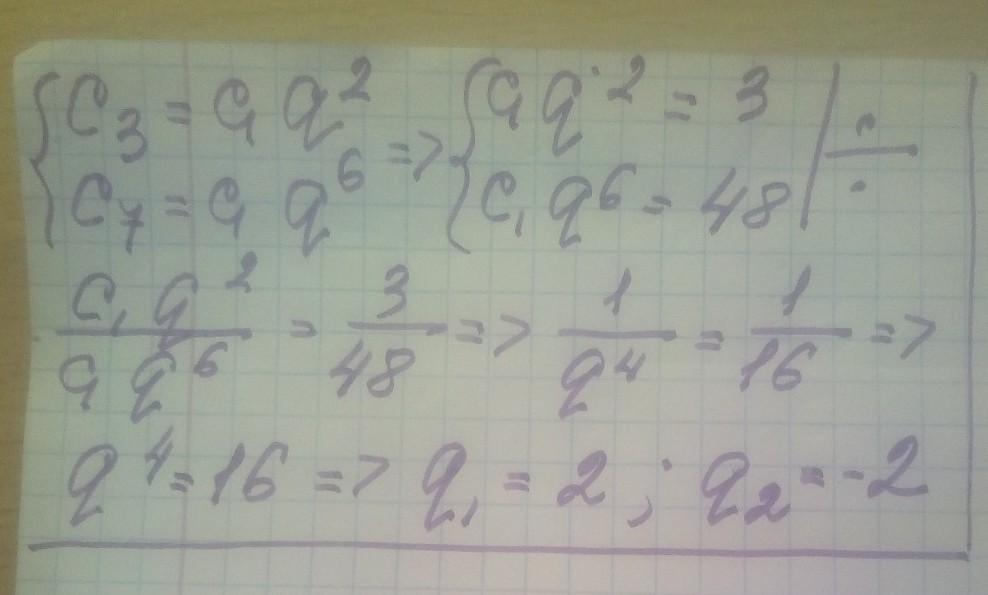 { c₃ = c₁ q² => { c₁ q² = 3 | :
{ c₇ = c₁ q⁶ => { c₁ q⁶ = 48 | :
c₁ q² / c₁ q⁶ = 3 / 48 => 1 / q⁴ = 1 / 16 =>
q⁴ = 16 => q₁ = 2 ; q₂ = -2